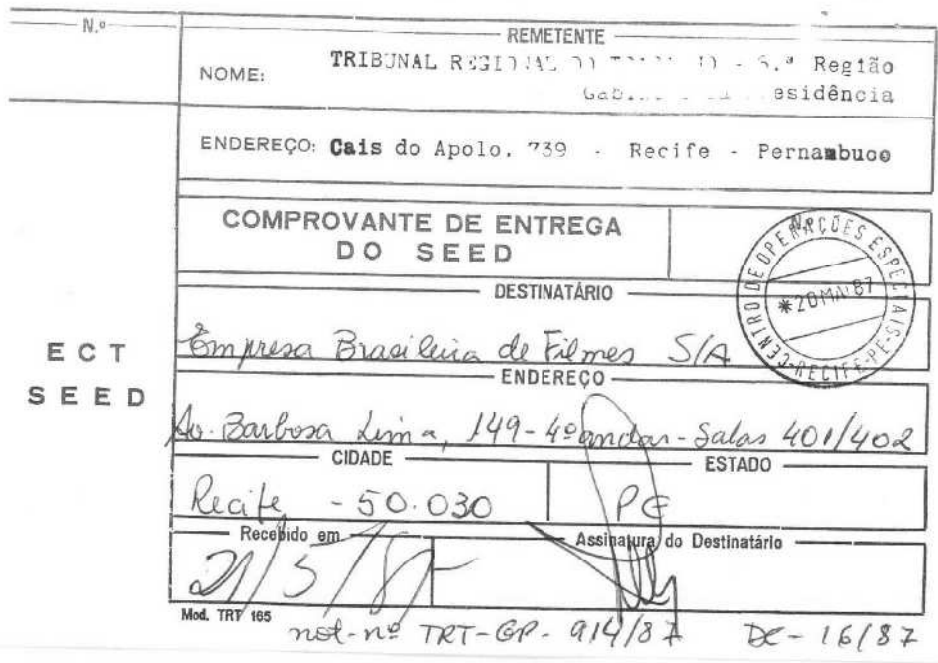 N.º
REMETENTE
NOME: TRIBUNAL REGIONAL DO - 6.ª Região
esidência
ENDEREÇO: Cais do Apolo, 739 - Recife - Pernambuco
COMPROVANTE DE ENTREGA
DO SEED
N.º
CENTRO DE OPERAÇÕES ESPECIAIS-RECIFE-PE-
*20 MAI 87
DESTINATÁRIO
Empresa Brasileira de Filmes S/A
ECT
SEED
ENDEREÇO
Av. Barbosa Lima, 149-4º andar-Salas 401/402
CIDADE
ESTADO
Recife - 50.030
PE
Recebido em
Assinatura do Destinatário
21/5/87
Mod. TRT 165
not-nº TRT-GP- 914/87 DC-16/87